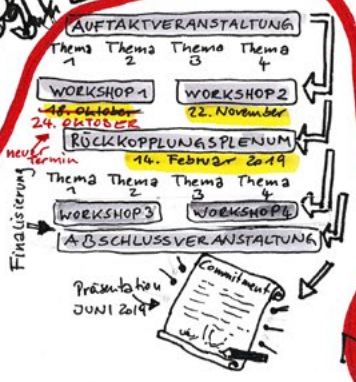 AUFTAKTVERANSTALTUNG
Thema 1 Thema 2 Thema 3 Thema 4
WORKSHOP 1 WORKSHOP 2
18. Oktober 22. November
24. OKTOBER
neuer Termin
RÜCKKOPPLUNGSPLENUM
14. Februar 2019
Thema 1 Thema 2 Thema 3 Thema 4
WORKSHOP 3 WORKSHOP 4
Finalisierung
ABSCHLUSSVERANSTALTUNG
Commitment
Präsentation
JUNI 2019